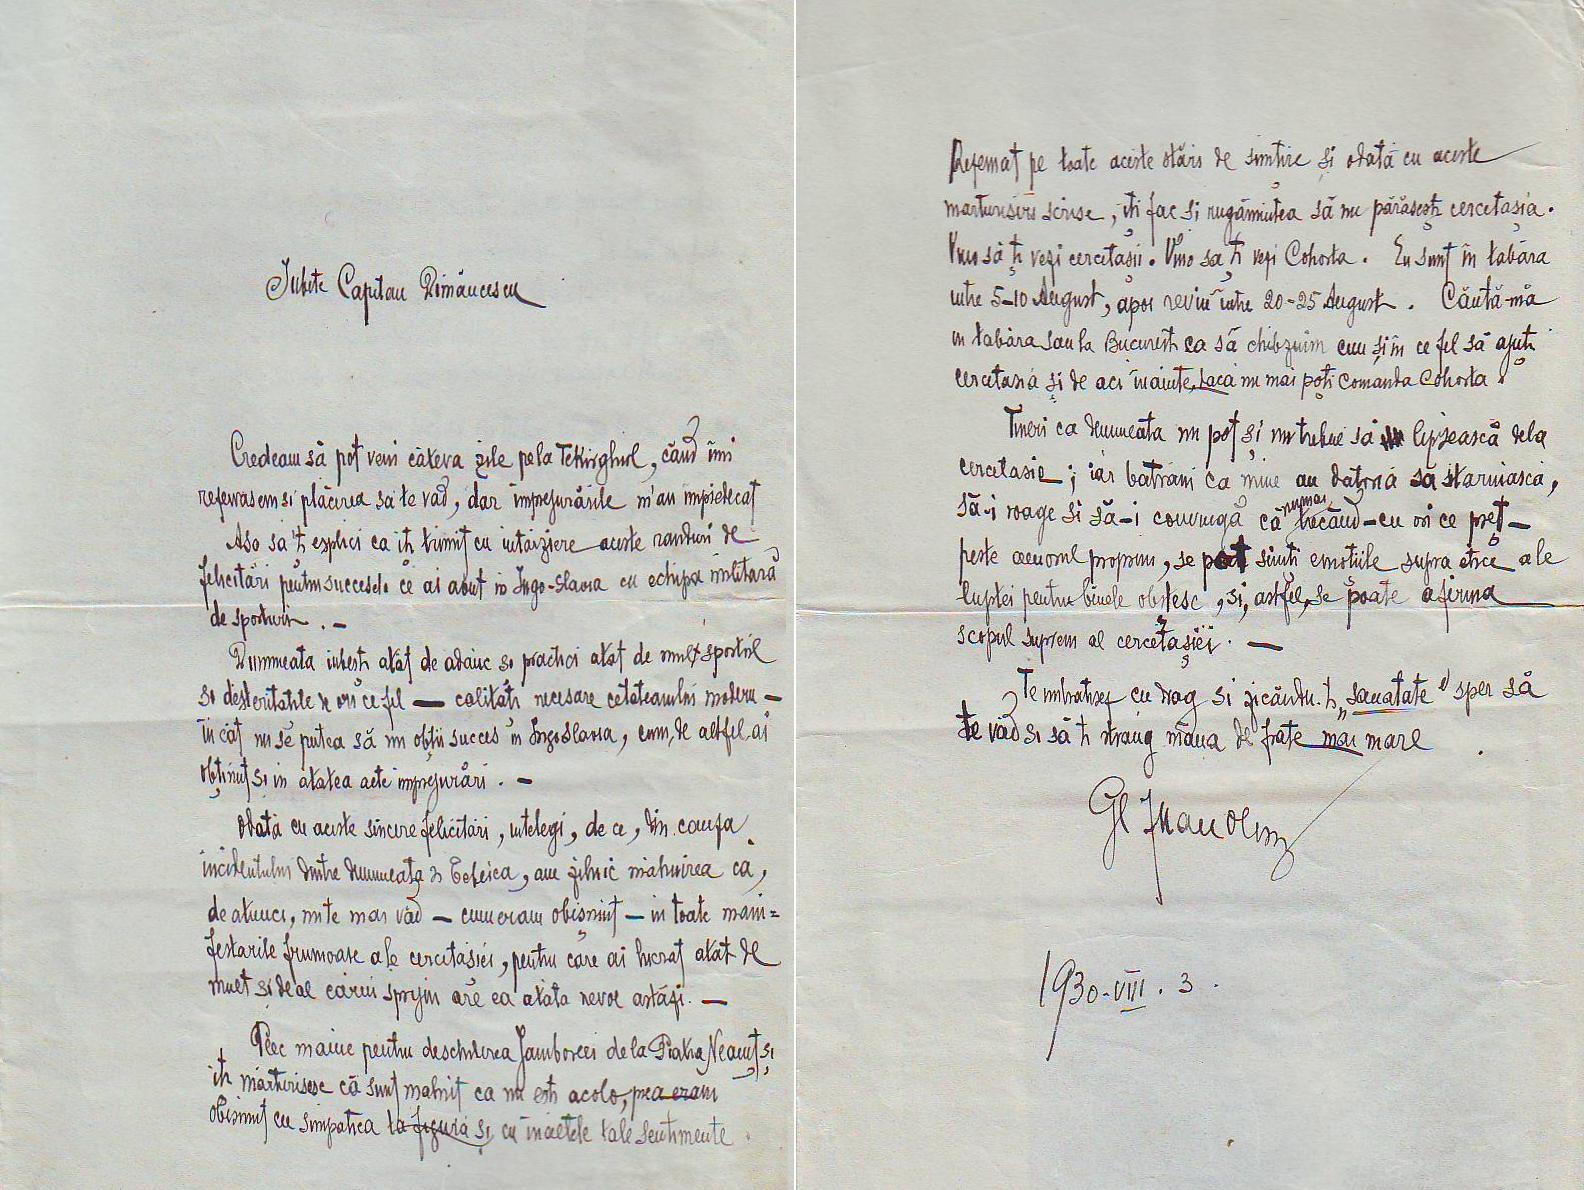 Iubite Capitan Dimăncescu
Credeam să pot veni câteva zile pela Tekirghiol, când îmi
rezervasem si plăcerea sa te văd, dar împrejurările m'au impiedecat
Aso să'ti esplici ca iti trimit cu intârziere aceste randuri de
felicitări pentru succesele ce ai avut in Jugo-Slavia cu echipa militară
de sporturi. —
Dumneata iubesti atat de adanc si practici atat de mult sporturile
si desteritatile de ori ce fel — calități necesare cetateanului modern —
în cât nu se putea să nu obții succes in Jugoslavia, cum, de altfel ai
obținut si in atatea alte imprejurări. —
Odată cu aceste sincere felicitări, intelegi, de ce, din cauza
incidentului dintre dumneata si, am zilnic mahnirea ca,
de atunci, nu te mai văd — cum eram obișnuit — in toate mani=
festarile frumoase ale cercetasiei, pentru care ai lucrat atat de
mult si de al cărui sprijin are ea atata nevoe astăzi. —
Plec maine pentru deschiderea Jamboreei de la Piatra Neamț și
iti mărturisesc că sunt mahnit ca nu esti acolo, eram
obisnuit cu simpatica ta figura și cu inaltele tale sentimente.
Rezemat pe toate aceste stări de simtire și odată cu aceste
marturisiri scrise, iti fac si rugămintea să nu părăsesti cercetașia.
Vino să ți vezi cercetașii. Vino sa ți vezi Cohorta. Eu sunt în tabăra
intre 5-10 August, apoi reviu între 20-25 August. Căută-mă
in tabăra sau la Bucuresti ca să chibzuim cum și în ce fel să ajuti
cercetasia și de aci înainte, daca nu mai poți comanda Cohorta.
Tineri ca dumneata nu pot și nu trebue să lipsească dela
cercetasie; iar batrâni ca mine au datoria să staruiască,
să-i roage si să-i convingă că numai trecând — cu ori ce preț —
peste amorul propriu, se pot simți emotiile supra etice ale
luptei pentru binele obstesc, și, astfel, se poate afirma
scopul suprem al cercetașiei. —
Te imbratisez cu drag si zicându-ti „sanatate" sper să
te văd si să ti strang mâna de frate mai mare.
Gl Manolescu
1930-VIII. 3.